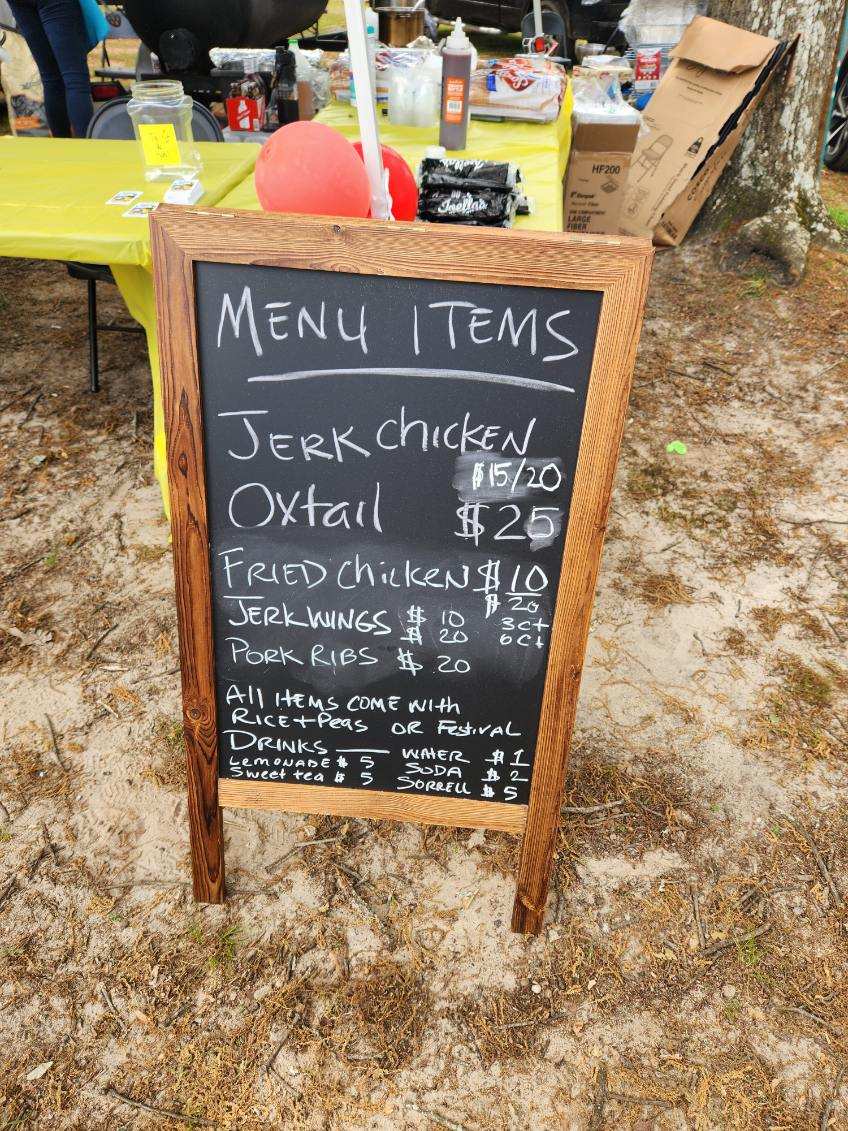 HF200
LARGE
FIBER
MENU ITEMS
JERK CHICKEN
$15/20
Oxtail $25
FRIED CHICKEN $10
$20
JERK WINGS $ 10 3ct
$ 20 6ct
PORK RIBS $ 20
All ITEMS COME WITH
RICE+PEAS OR FESTIVAL
DRINKS WATER $1
LEMONADE $ 5 SODA $2
Sweet tea $ 5 SORRELL $5